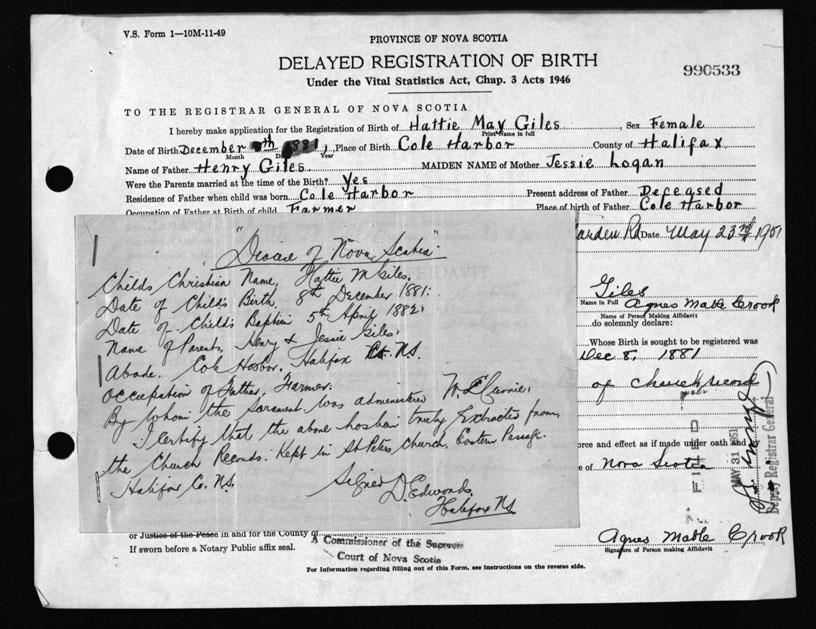 V.S. Form 1—10M-11-49
PROVINCE OF NOVA SCOTIA
DELAYED REGISTRATION OF BIRTH
990533
Under the Vital Statistics Act, Chap. 3 Acts 1946
TO THE REGISTRAR GENERAL OF NOVA SCOTIA
I hereby make application for the Registration of Birth of Hattie May Giles Sex Female
Print Name in full
Date of Birth December 8th 1881, Place of Birth Cole Harbor County of Halifax
Month Day Year
Name of Father Henry Giles MAIDEN NAME of Mother Jessie Logan
Were the Parents married at the time of the Birth? Yes
Residence of Father when child was born Cole Harbor Present address of Father Deceased
Occupation of Father at Birth of child Farmer Place of birth of Father Cole Harbor
arden Rd Date May 23rd 1951
"Diocese of Nova Scotia"
Childs Christian Name, Hattie M Giles.
Date of Child's Birth, 8th December 1881:
Date of Child's Baptism 5th April 1882:
Name of Parents, Henry & Jessie Giles:
Abode. Cole Harbor. Halifax Co. NS.
Occupation of Father, Farmer.
By Whom the Sacrament was administered W. L. Currie.
I certify that the above has been truly Extracted from
the Church Records. Kept in St Peters Church, Eastern Passage.
Halifax Co. N.S.
Signed D. Edwards.
Halifax NS
Giles
Name in Full Agnes Mable Crook
Name of Person Making Affidavit
do solemnly declare:
Whose Birth is sought to be registered was
Dec 8, 1881
of church record
orce and effect as if made under oath and
e of Nova Scotia
FILED
MAY 31 1951
Deputy Registrar General
or Justice of the Peace in and for the County of
If sworn before a Notary Public affix seal.
A Commissioner of the Supreme
Court of Nova Scotia
Agnes Mable Crook
Signature of Person making Affidavit
For Information regarding filling out of this Form, see instructions on the reverse side.